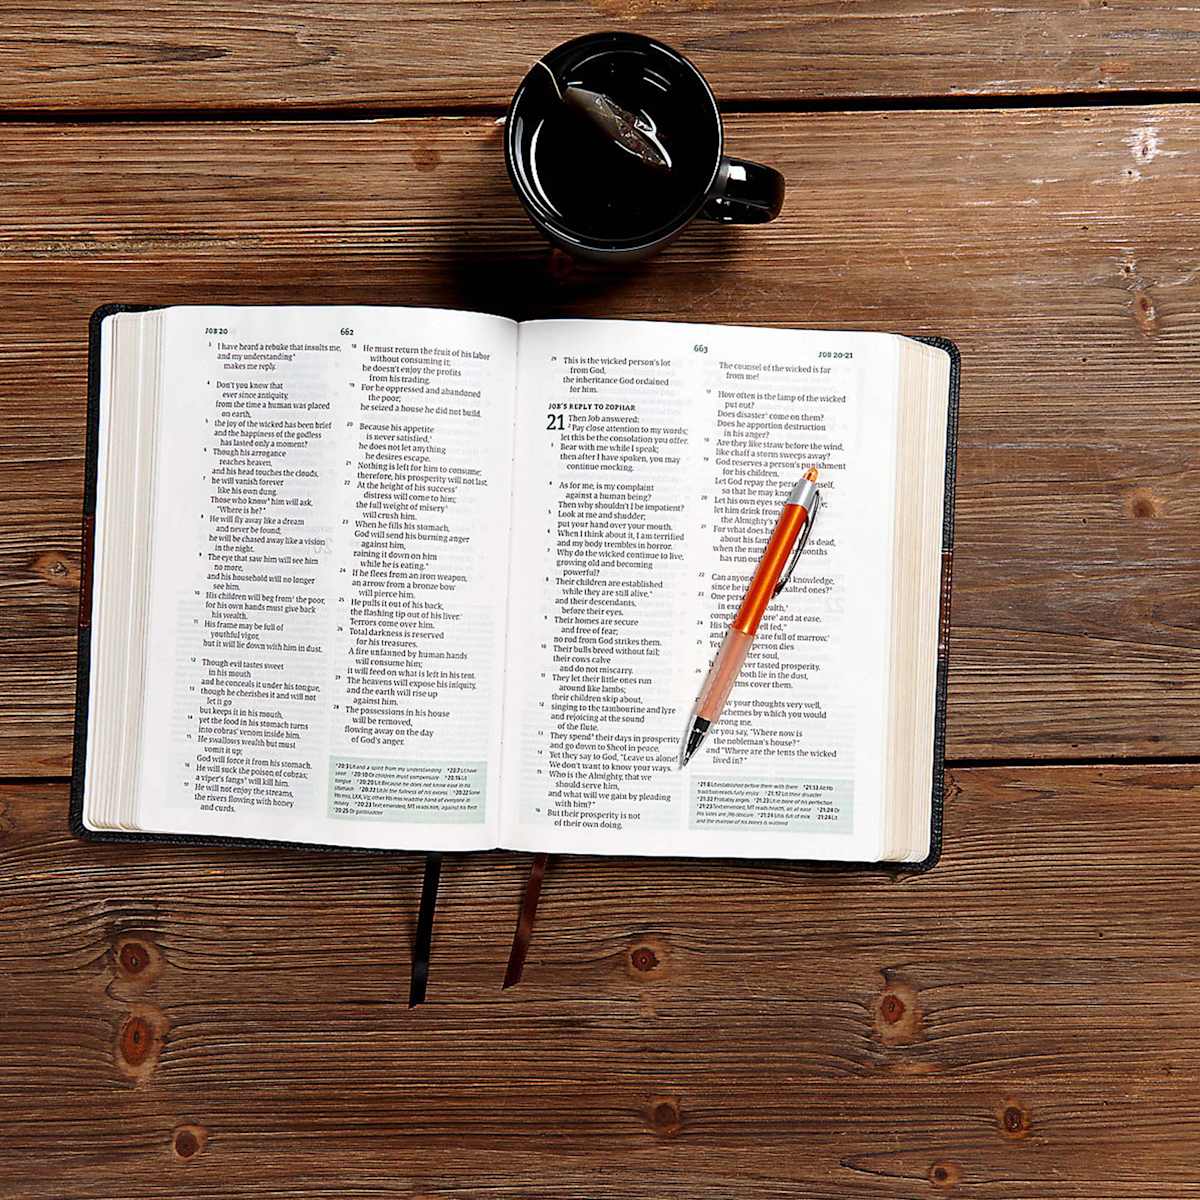 JOB 20
662
3 I have heard a rebuke that insults me,
and my understanding*
makes me reply.
4 Don't you know that
ever since antiquity,
from the time a human was placed
on earth,
5 the joy of the wicked has been brief
and the happiness of the godless
has lasted only a moment?
6 Though his arrogance
reaches heaven,
and his head touches the clouds,
7 he will vanish forever
like his own dung.
Those who know* him will ask,
"Where is he?"
8 He will fly away like a dream
and never be found;
he will be chased away like a vision
in the night.
9 The eye that saw him will see him
no more,
and his household will no longer
see him.
10 His children will beg from* the poor,
for his own hands must give back
his wealth.
11 His frame may be full of
youthful vigor,
but it will lie down with him in dust.
12 Though evil tastes sweet
in his mouth
and he conceals it under his tongue,
13 though he cherishes it and will not
let it go
but keeps it in his mouth,
14 yet the food in his stomach turns
into cobras' venom inside him.
15 He swallows wealth but must
vomit it up;
God will force it from his stomach.
16 He will suck the poison of cobras;
a viper's fangs* will kill him.
17 He will not enjoy the streams,
the rivers flowing with honey
and curds.
18 He must return the fruit of his labor
without consuming it;
he doesn't enjoy the profits
from his trading.
19 For he oppressed and abandoned
the poor;
he seized a house he did not build.
20 Because his appetite
is never satisfied,*
he does not let anything
he desires escape.
21 Nothing is left for him to consume;
therefore, his prosperity will not last.
22 At the height of his success*
distress will come to him;
the full weight of misery*
will crush him.
23 When he fills his stomach,
God will send his burning anger
against him,
raining it down on him
while he is eating.*
24 If he flees from an iron weapon,
an arrow from a bronze bow
will pierce him.
25 He pulls it out of his back,
the flashing tip out of his liver.*
Terrors come over him.
26 Total darkness is reserved
for his treasures.
A fire unfanned by human hands
will consume him;
it will feed on what is left in his tent.
27 The heavens will expose his iniquity,
and the earth will rise up
against him.
28 The possessions in his house
will be removed,
flowing away on the day
of God's anger.
*20:3 Lit and a spirit from my understanding *20:7 Lit have
seen *20:10 Or children must compensate *20:16 Lit
tongue *20:20 Lit Because he does not know ease in his
stomach *20:22 Lit In the fullness of his excess *20:22 Some
*20:23 Text emended
*20:25 Or gallbladder
663
JOB 20-21
29 This is the wicked person's lot
from God,
the inheritance God ordained
for him.
JOB'S REPLY TO ZOPHAR
21 Then Job answered:
2 Pay close attention to my words;
let this be the consolation you offer.
3 Bear with me while I speak;
then after I have spoken, you may
continue mocking.
4 As for me, is my complaint
against a human being?
Then why shouldn't I be impatient?
5 Look at me and shudder;
put your hand over your mouth.
6 When I think about it, I am terrified
and my body trembles in horror.
7 Why do the wicked continue to live,
growing old and becoming
powerful?
8 Their children are established
while they are still alive,*
and their descendants,
before their eyes.
9 Their homes are secure
and free of fear;
no rod from God strikes them.
10 Their bulls breed without fail;
their cows calve
and do not miscarry.
11 They let their little ones run
around like lambs;
their children skip about,
12 singing to the tambourine and lyre
and rejoicing at the sound
of the flute.
13 They spend* their days in prosperity
and go down to Sheol in peace.
14 Yet they say to God, "Leave us alone!
We don't want to know your ways.
15 Who is the Almighty, that we
should serve him,
and what will we gain by pleading
with him?"
16 But their prosperity is not
of their own doing.
The counsel of the wicked is far
from me!
17 How often is the lamp of the wicked
put out?
Does disaster* come on them?
Does he apportion destruction
in his anger?
18 Are they like straw before the wind,
like chaff a storm sweeps away?
19 God reserves a person's punishment
for his children.
Let God repay the person himself,
so that he may know
20 Let his own eyes see
let him drink from
the Almighty's
21 For what does he
about his fam is dead,
when the num months
has run out
22 Can anyone knowledge,
since he ju exalted ones?*
23 One pers
in exc ealth,*
comple and at ease.
24 His b ed,*
and are full of marrow.*
25 Yet person dies
tter soul,
ver tasted prosperity.
26 both lie in the dust,
rms cover them.
27 ow your thoughts very well,
chemes by which you would
wrong me.
28 or you say, "Where now is
the nobleman's house?"
and "Where are the tents the wicked
lived in?"
*21:8 Lit established before them with them *21:13 Alt Hb
tradition reads fully enjoy *21:17 Lit their disaster
*21:22 Probably angels *21:23 Lit in bone of his perfection
*21:23 Text emended; MT reads *21:24 Or
His sides are; Hb obscure *21:24 Lit is full of milk *21:24 Lit
and the marrow of his bones is watered